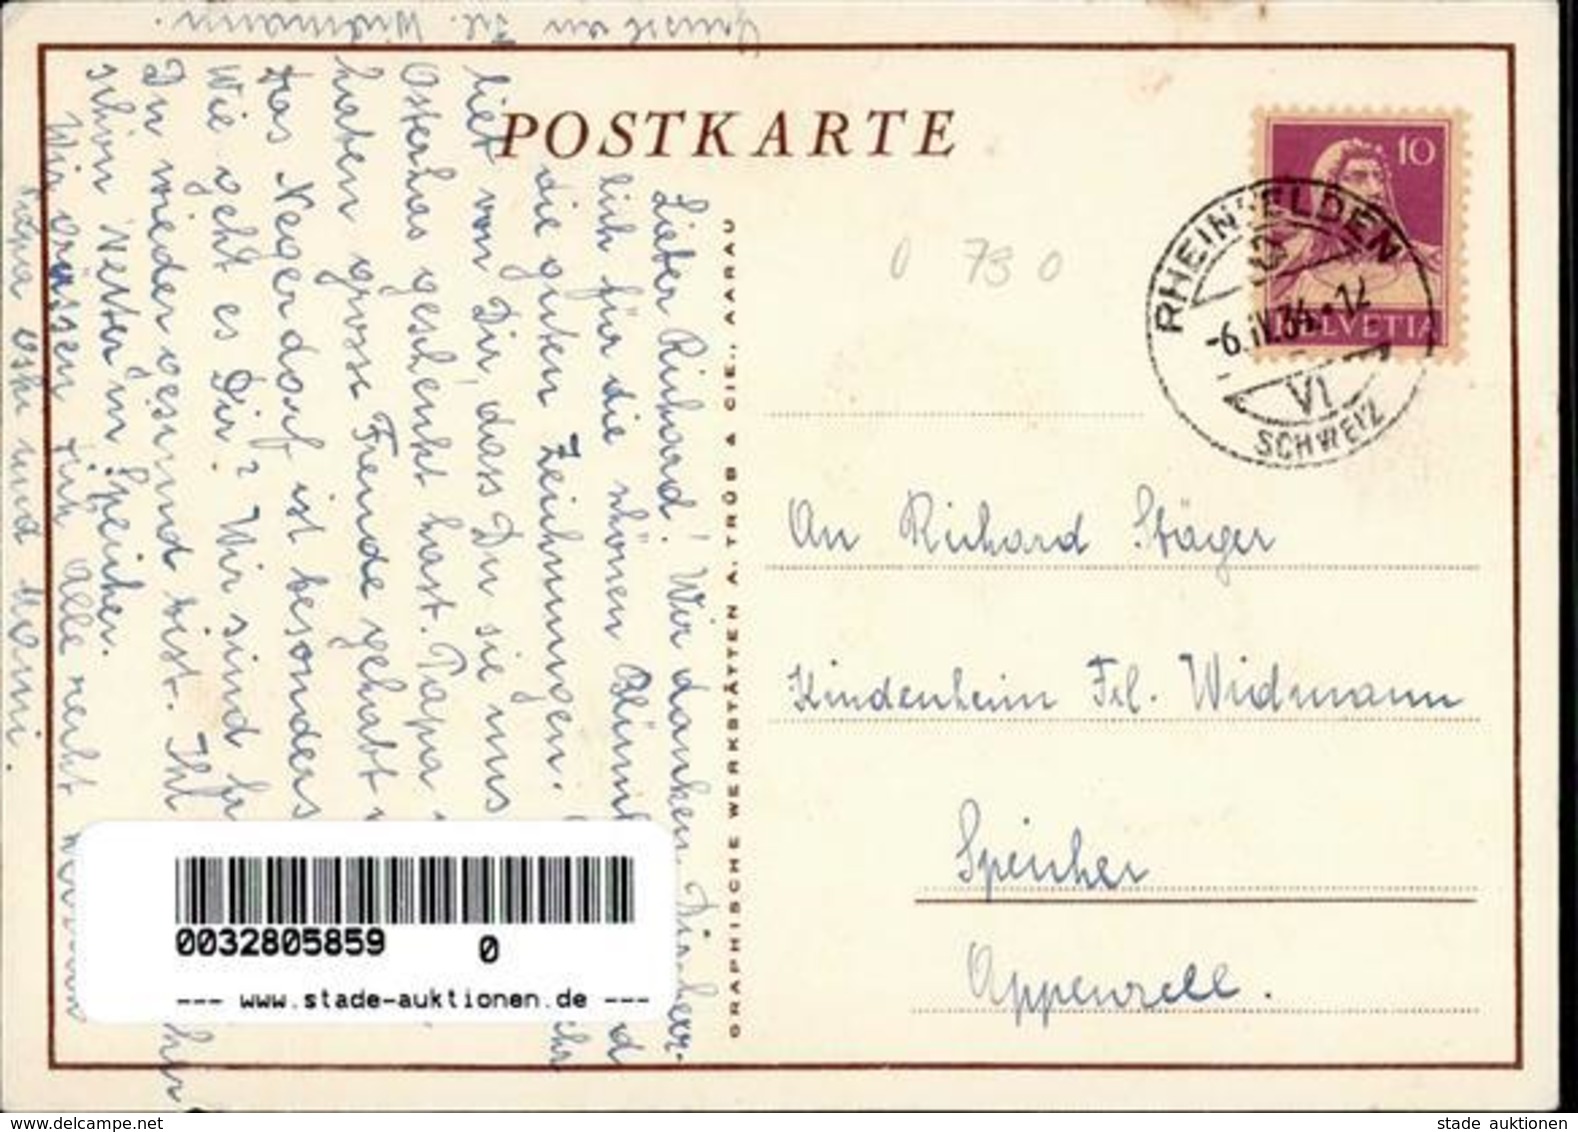 POSTKARTE
10
HELVETIA
RHEINFELDEN
-6.IV.34.-12
VI
SCHWEIZ
0 790
An Richard Stäger
Kindenheim Frl. Widmann
Speicher
Appenzell.
GRAPHISCHE WERKSTÄTTEN A. TRÜB & CIE., AARAU
Lieber Richard! Wir danken Dir herz-
lich für die schönen
die guten Zeichnungen.
liet von Dir, dass Du sie uns
Osterhas geschenkt hast. Papa
haben grosse Freude gehabt
das Negerdorf ist besonders
Wie geht es Dir? Wir sind
Du wieder gesund bist. Ihr
schön Wetter in Speicher.
Wir grüssen Dich alle recht
Papa Oski und Mami.
Gruss an Frl. Widmann.
0032805859 0
--- www.stade-auktionen.de ---
www.delcampe.net
stade auktionen